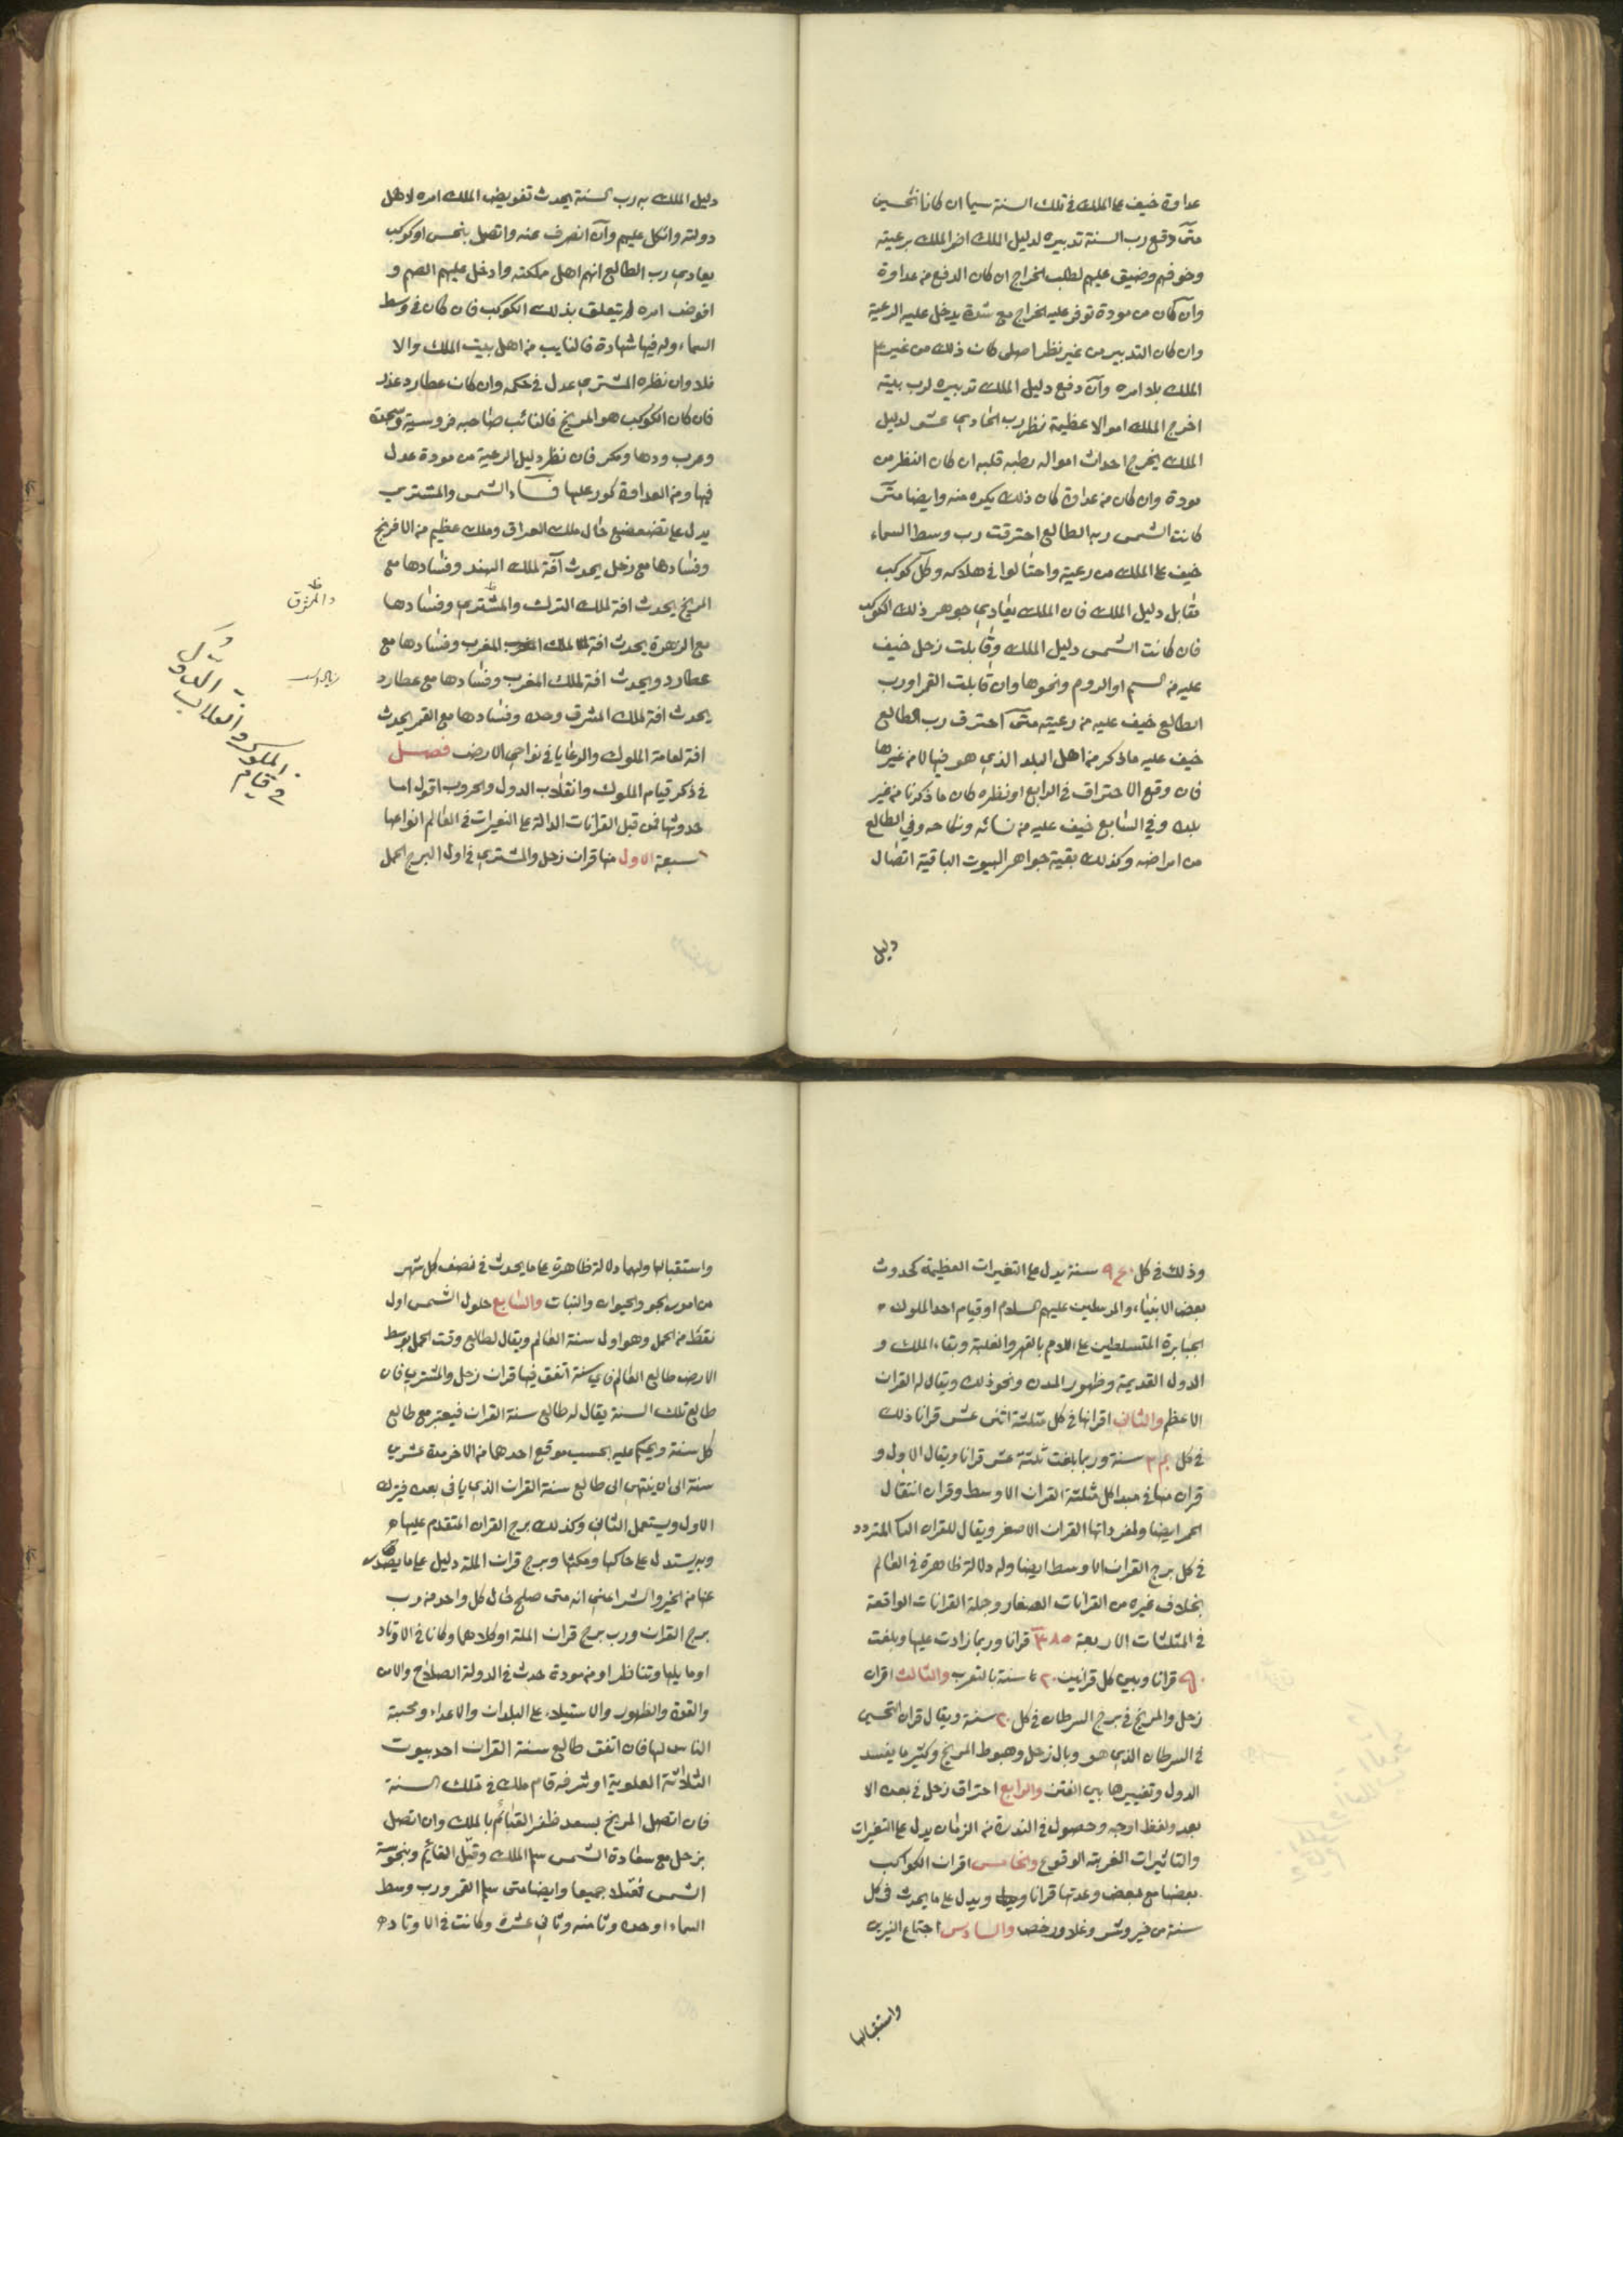 عداوة خيف على الملك في تلك السنة سيما ان كانا نحسين
متى دفع رب السنة تدبيره لدليل الملك اضر الملك برعيته
وخوفهم وضيق عليهم لطلب الخراج ان كان الدفع من عداوة
وان كان من مودة توفر عليه الخراج مع شدة يدخل عليه الرعية
وان كان التدبير من غير نظر اصلى كان ذلك من غير علم
الملك بلا امره وان دفع دليل الملك تدبيره لرب بيته
اخرج الملك اموالا عظيمة نظر رب الحادي عشر لدليل
الملك يخرج احداث امواله بطيبه قلبه ان كان النظر من
مودة وان كان من عداوة كان ذلك بكره منه وايضا متى
كانت الشمس ربه الطالع احترقت رب وسط السماء
خيف على الملك من رعيته واحتالوا في هلاكه وكل كوكب
مقابل دليل الملك فان الملك يعادي جوهر ذلك الكوكب
فان كانت الشمس دليل الملك وقابلت زحل خيف
عليه من السم او الروم ونحوها وان قابلت القمر او رب
الطالع خيف عليه من رعيته متى احترف رب الطالع
خيف عليه ماذكر من اهل البلد الذي هو فيها لا من غيرها
فان وقع الاحتراق في الرابع او نظره كان ما ذكرنا من غير
بلده وفي السابع خيف عليه من نسائه ونكاحه وفي الطالع
من امراضه وكذلك بقية جواهر البيوت الباقية اتصال
دليل
دليل الملك به رب السنة يحدث تفويض الملك امره لاهل
دولته واتكل عليهم وان انصرف عنه واتصل بنحس او كوكب
يعادي رب الطالع انهم اهل مملكته وادخل عليهم الهم و
افوض امره لم يتعلق بذلك الكوكب فان كان في وسط
السماء وله فيها شهادة فالنايب من اهل بيت الملك والا
فلا وان نظره المشتري عدل في حكمه وان كان عطارد عذر
فان كان الكوكب هو المريخ فالنائب صاحبه فروسية وشجعة
وحرب ودها ومكر فان نظر دليل الرعية من مودة عدل
فيها ومن العداوة كور عليها فساد الشمس والمشتري
يدل على تضعضع حال ملك العراق وملك عظيم من الافرنج
وفسادها مع زحل يحدث آفة لملك الهند وفسادها مع
المريخ يحدث افة لملك الترك والمشتري وفسادها
مع الزهرة يحدث افة لملك المغرب وفسادها مع
عطارد ويحدث افة لملك المغرب وفسادها مع عطارد
يحدث افة لملك المشرق وحده وفسادها مع القمر يحدث
افة لعامة الملوك والرعايا في نواحي الارض فصل
في ذكر قيام الملوك وانقلاب الدول والحروب اقول اما
حدوثها فمن قبل القرانات الدالة على التغيرات في العالم انواعها
سبعة الاول منها قران زحل والمشتري في اول البرج الحمل
والمشرق
في قيام
الملوك وانقلاب
الدول
وذلك في كل سنة يدل على التغيرات العظيمة كحدوث
بعض الانبياء والمرسلين عليهم السلام او قيام احد الملوك
الجبابرة المتسلطين على الامم بالقهر والغلبة وبقاء الملك و
الدول القديمة وظهور المدن ونحو ذلك ويقال له القران
الاعظم والثاني اقرانها في كل مثلثة اثنى عشر قرانا ذلك
في كل سنة وربما بلغت ثلثة عشر قرانا ويقال الاول و
قران منها في مبدا كل مثلثة القران الاوسط وقران انتقال
الممر ايضا ولمفرداتها القران الاصغر ويقال للقران المتردد
في كل برج القران الاوسط ايضا وله دلالة ظاهرة في العالم
بخلاف غيره من القرانات الصغار وجملة القرانات الواقعة
في المثلثات الاربعة قرانا وربما زادت عليها وبلغت
قرانا وبين كل قرانين ٢٠ سنة بالتقرب والثالث اقران
زحل والمريخ في برج السرطان في كل سنة ويقال قران النحسين
في السرطان الذي هو وبال زحل وهبوط المريخ وكثير ما يفسد
الدول وتغييرها بين الفتن والرابع احتراق زحل في بعده الا
بعد ولفظ اوجه وحصوله في الندرة من الزمان يدل على التغيرات
والتاثيرات الغريبة الوقوع والخامس اقران الكواكب
بعضها مع بعض وعدتها قرانا ويدل على ما يحدث في كل
سنة من خير وشر وغلا ورخص والسادس اجتماع النيرين
واستقبالها
واستقبالها ولهما دلالة ظاهرة على ما يحدث في نصف كل شهر
من امور الجو والحيوان والنبات والسابع حلول الشمس اول
نقطة من الحمل وهو اول سنة العالم ويقال لطالع وقت الحمل بوسط
الارض طالع العالم فاي سنة اتفق فيها قران زحل والمشتري فان
طالع تلك السنة يقال له طالع سنة القران فيعتبر مع طالع
كل سنة ويحكم عليه بحسب موقع احدهما من الاخر مدة عشرين
سنة الى ان ينتهي الى طالع سنة القران الذي ياتي بعده فيترك
الاول ويستعمل الثاني وكذلك برج القران المتقدم عليها
وبه يستدل على حاكمها ومكثها وبرج قران الملة دليل على ما يصدر
عنها من الخير والشر اعني انه متى صلح حال كل واحد من رب
برج القران ورب برج قران الملة او كلاهما وكانا في الاوتاد
او ما يليها وتناظرا ومن مودة حدث في الدولة الصلاح والامن
والقوة والظهور والاستيلاء على البلدان والاعداء ومحبة
الناس لها فان اتفق طالع سنة القران احد بيوت
الثلاثة العلوية او شرفه قام ملك في تلك السنة
فان اتصل المريخ بسعد ظفر القائم بالملك وان اتصل
بزحل مع سعادة الشمس سلم الملك وقتل القائم وبنحوسة
الشمس تقتلا جميعا وايضا متى سلم القمر ورب وسط
السماء او حده وثامنه وثاني عشره وكانت في الاوتاد